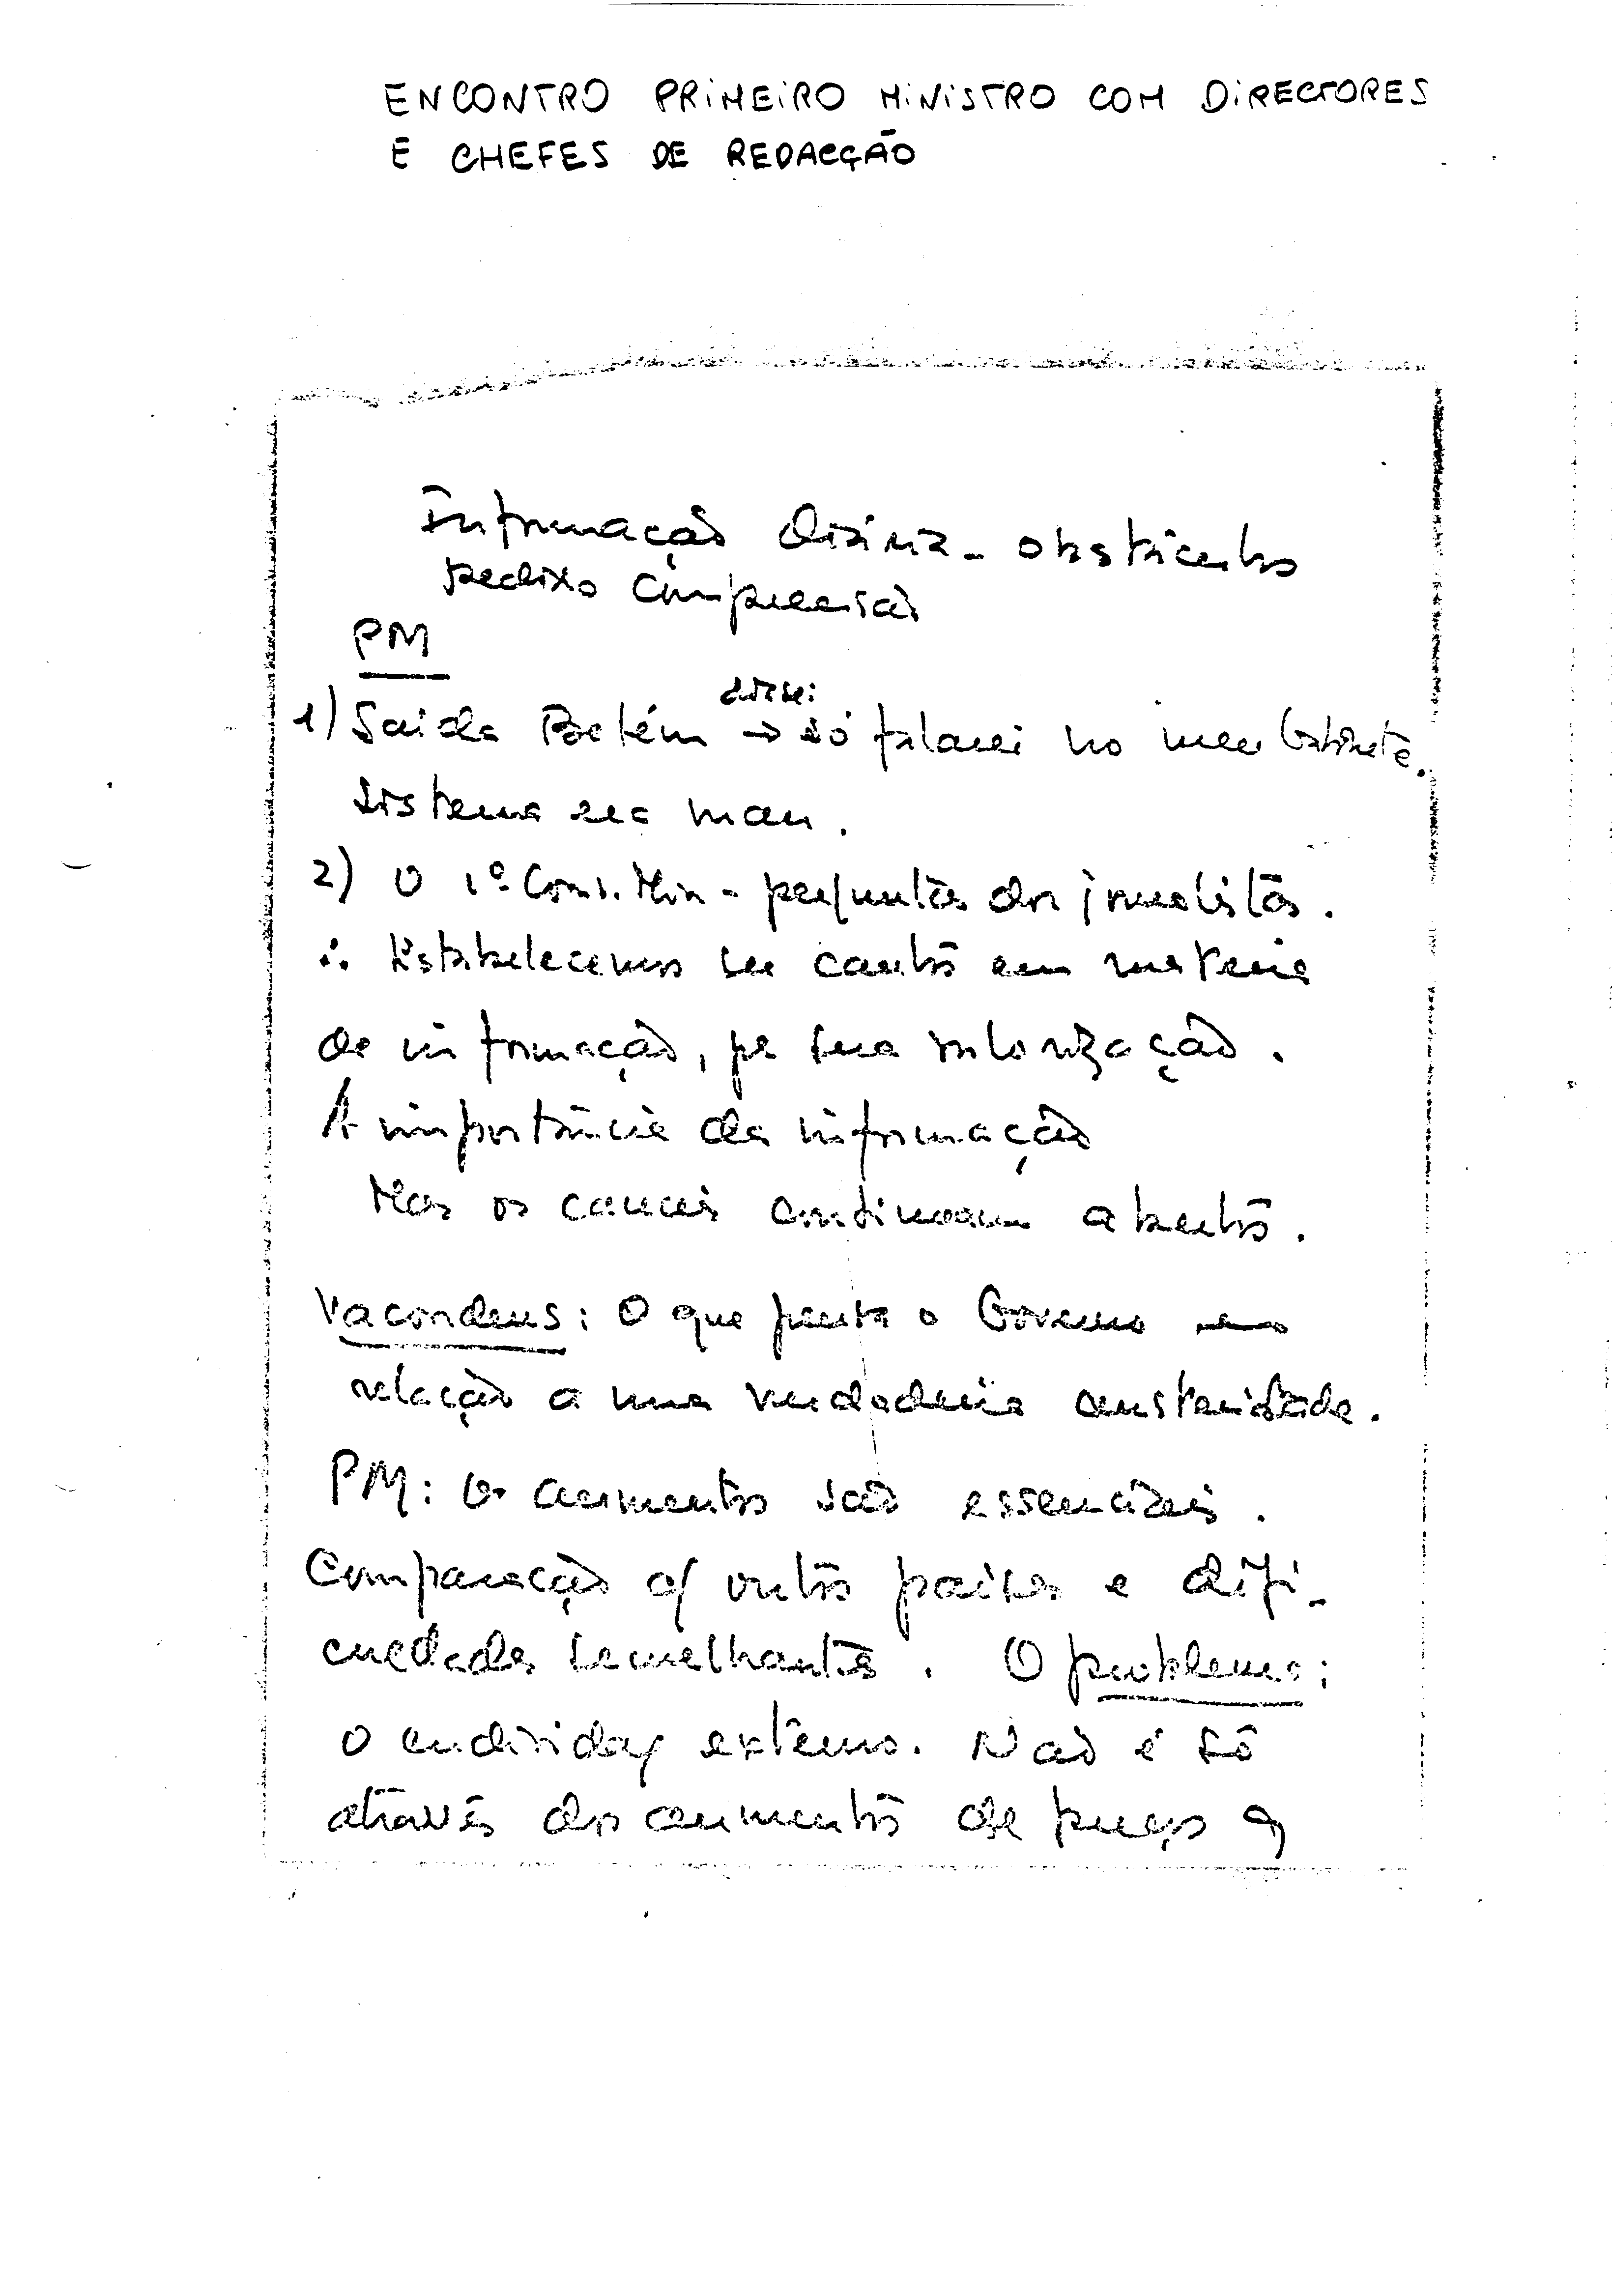 ENCONTRO PRIMEIRO MINISTRO COM DIRECTORES
E CHEFES DE REDACÇÃO
Informação diária - obstáculos
pedido compreensão
PM
disse:
1) Saída Belém → só falarei no meu Gabinete.
Sistema era mau.
2) O 1º Cons. Min - perguntas dos jornalistas.
∴ Estabelecemos em matéria
de informação, pª sua valorização.
A importância da informação
Mas os canais continuam abertos.
Vacondeus: O que pensa o Governo em
relação a uma verdadeira austeridade.
PM: Os aumentos são essenciais.
Comparação c/ outros países e difi-
culdades semelhantes. O problema:
o endividº externo. Não é só
através dos aumentos de preços q